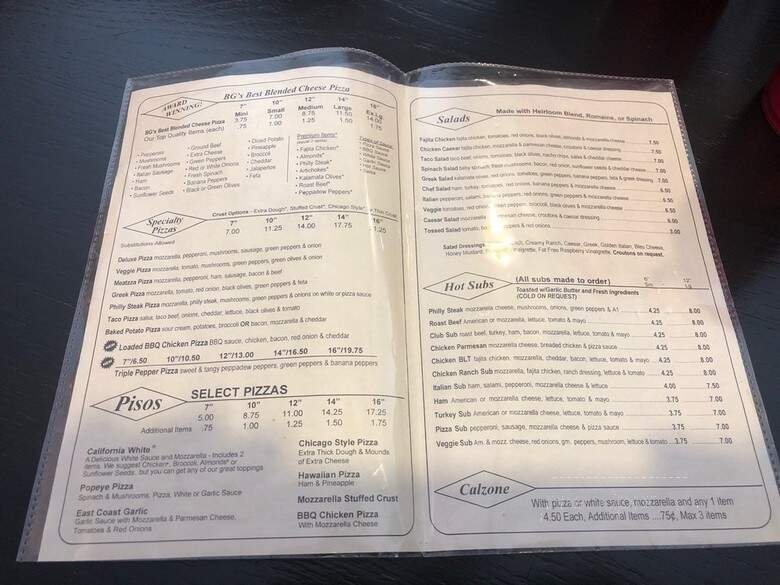 AWARD WINNING!
BG's Best Blended Cheese Pizza
7" 10" 12" 14" 16"
Mini Small Medium Large Ex. Lg.
BG's Best Blended Cheese Pizza 3.75 7.00 8.75 11.50 14.00
Our Top Quality Items (each) .75 1.00 1.25 1.50 1.75
• Pepperoni
• Mushrooms
• Fresh Mushrooms
• Italian Sausage
• Ham
• Bacon
• Sunflower Seeds
• Ground Beef
• Extra Cheese
• Green Peppers
• Red or White Onions
• Fresh Spinach
• Banana Peppers
• Black or Green Olives
• Diced Potato
• Pineapple
• Broccoli
• Cheddar
• Jalapeños
• Feta
Premium Items*
• Fajita Chicken*
• Almonds*
• Philly Steak*
• Artichokes*
• Kalamata Olives*
• Roast Beef*
• Peppadew Peppers*
Types of Sauce
• Pizza Sauce
• BBQ Sauce
• White Sauce
• Garlic Sauce
• Hot Sauce
• Salsa
Specialty Pizzas
Crust Options - Extra Dough*, Stuffed Crust*, Chicago Style*, Thin Crust
7" 10" 12" 14" 16"
7.00 11.25 14.00 17.75 21.25
Substitutions Allowed
Deluxe Pizza mozzarella, pepperoni, mushrooms, sausage, green peppers & onion
Veggie Pizza mozzarella, tomato, mushrooms, green peppers, green olives & onion
Meatzza Pizza mozzarella, pepperoni, ham, sausage, bacon & beef
Greek Pizza mozzarella, tomato, red onion, black olives, green peppers & feta
Philly Steak Pizza mozzarella, philly steak, mushrooms, green peppers & onions on white or pizza sauce
Taco Pizza salsa, taco beef, onions, cheddar, lettuce, black olives & tomato
Baked Potato Pizza sour cream, potatoes, broccoli OR bacon, mozzarella & cheddar
Loaded BBQ Chicken Pizza BBQ sauce, chicken, bacon, red onion & cheddar
7"/6.50 10"/10.50 12"/13.00 14"/16.50 16"/19.75
Triple Pepper Pizza sweet & tangy peppadew peppers, green peppers & banana peppers
Pisos
SELECT PIZZAS
7" 10" 12" 14" 16"
5.00 8.75 11.00 14.25 17.25
Additional Items .75 1.00 1.25 1.50 1.75
California White*
A Delicious White Sauce and Mozzarella - Includes 2
items. We suggest Chicken*, Broccoli, Almonds* or
Sunflower Seeds, but you can get any of our great toppings
Popeye Pizza
Spinach & Mushrooms, Pizza, White or Garlic Sauce
East Coast Garlic
Garlic Sauce with Mozzarella & Parmesan Cheese,
Tomatoes & Red Onions
Chicago Style Pizza
Extra Thick Dough & Mounds
of Extra Cheese
Hawaiian Pizza
Ham & Pineapple
Mozzarella Stuffed Crust
BBQ Chicken Pizza
With Mozzarella Cheese
Salads
Made with Heirloom Blend, Romaine, or Spinach
Fajita Chicken fajita chicken, tomatoes, red onions, black olives, almonds & mozzarella cheese 7.50
Chicken Caesar fajita chicken, mozzarella & parmesan cheese, croutons & caesar dressing 7.50
Taco Salad taco beef, onions, tomatoes, black olives, nacho chips, salsa & cheddar cheese 7.00
Spinach Salad baby spinach, fresh mushrooms, bacon, red onion, sunflower seeds & cheddar cheese 7.00
Greek Salad kalamata olives, red onions, tomatoes, green peppers, banana peppers, feta & greek dressing 7.00
Chef Salad ham, turkey, tomatoes, red onions, banana peppers & mozzarella cheese 6.50
Italian pepperoni, salami, banana peppers, red onions, green peppers & mozzarella cheese 6.50
Veggie tomatoes, red onion, green peppers, broccoli, black olives & mozzarella cheese 6.50
Caesar Salad mozzarella & parmesan cheese, croutons & caesar dressing 6.00
Tossed Salad tomato, peppers & red onions 3.00
Salad Dressings Ranch, Creamy Ranch, Caesar, Greek, Golden Italian, Bleu Cheese,
Honey Mustard, Vinaigrette, Fat Free Raspberry Vinaigrette. Croutons on request.
Hot Subs
(All subs made to order)
Toasted w/Garlic Butter and Fresh Ingredients
(COLD ON REQUEST)
6" Sm. 12" Lg.
Philly Steak mozzarella cheese, mushrooms, onions, green peppers & A1 4.25 8.00
Roast Beef American or mozzarella cheese, lettuce, tomato & mayo 4.25 8.00
Club Sub roast beef, turkey, ham, bacon, mozzarella, lettuce, tomato & mayo 4.25 8.00
Chicken Parmesan mozzarella cheese, breaded chicken & pizza sauce 4.25 8.00
Chicken BLT fajita chicken, mozzarella, cheddar, bacon, lettuce, tomato & mayo 4.25 8.00
Chicken Ranch Sub mozzarella, fajita chicken, ranch dressing, lettuce & tomato 4.25 8.00
Italian Sub ham, salami, pepperoni, mozzarella cheese & lettuce 4.00 7.50
Ham American or mozzarella cheese, lettuce, tomato & mayo 3.75 7.00
Turkey Sub American or mozzarella cheese, lettuce, tomato & mayo 3.75 7.00
Pizza Sub pepperoni, sausage, mozzarella cheese & pizza sauce 3.75 7.00
Veggie Sub Am. & mozz. cheese, red onions, grn. peppers, mushroom, lettuce & tomato 3.75 7.00
Calzone
With pizza or white sauce, mozzarella and any 1 item
4.50 Each, Additional Items ....75¢, Max 3 items